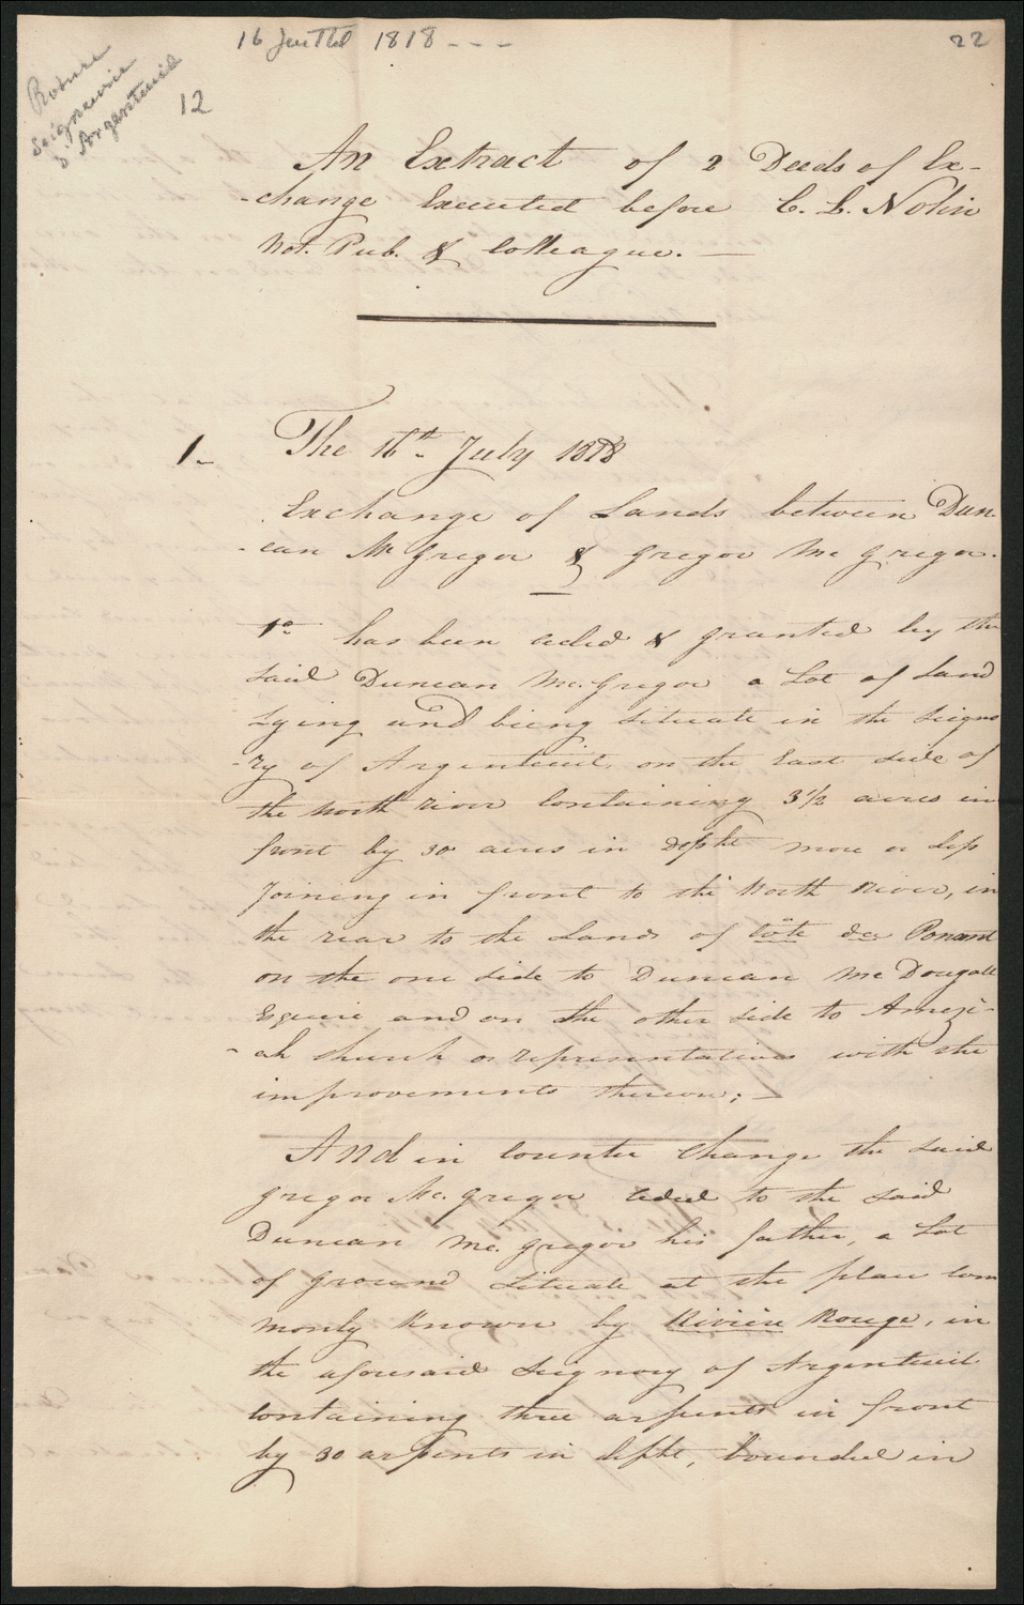 16 Juillet 1818 - - -
22
Roture
Seigneurie
d'Argenteuil
12
An Extract of 2 Deeds of Ex-
-change Executed before C. L. Nolin
Not. Pub. & Colleague. —
1- The 16th. July 1818
Exchange of Lands between Dun-
-can McGregor & Gregor McGregor.
1o. has been ceded & granted by the
said Duncan McGregor a Lot of Land
Lying and being situate in the Seigno
-ry of Argenteuil, on the East side of
the North river Containing 3 1/2 acres in
front by 30 acres in Depht more or Less
Joining in front to the North River, in
the rear to the Lands of Côte du Ponant
on the one side to Duncan McDougall
Esquire and on the other side to Amezi-
-ah Church or representatives with the
improvements thereon; —
And in Counter Change the said
Gregor McGregor ceded to the said
Duncan McGregor his father, a Lot
of ground Situate at the place com
monly Known by Rivière Rouge, in
the aforesaid Seignory of Argenteuil
Containing three arpents in front
by 30 arpents in depht, bounded in